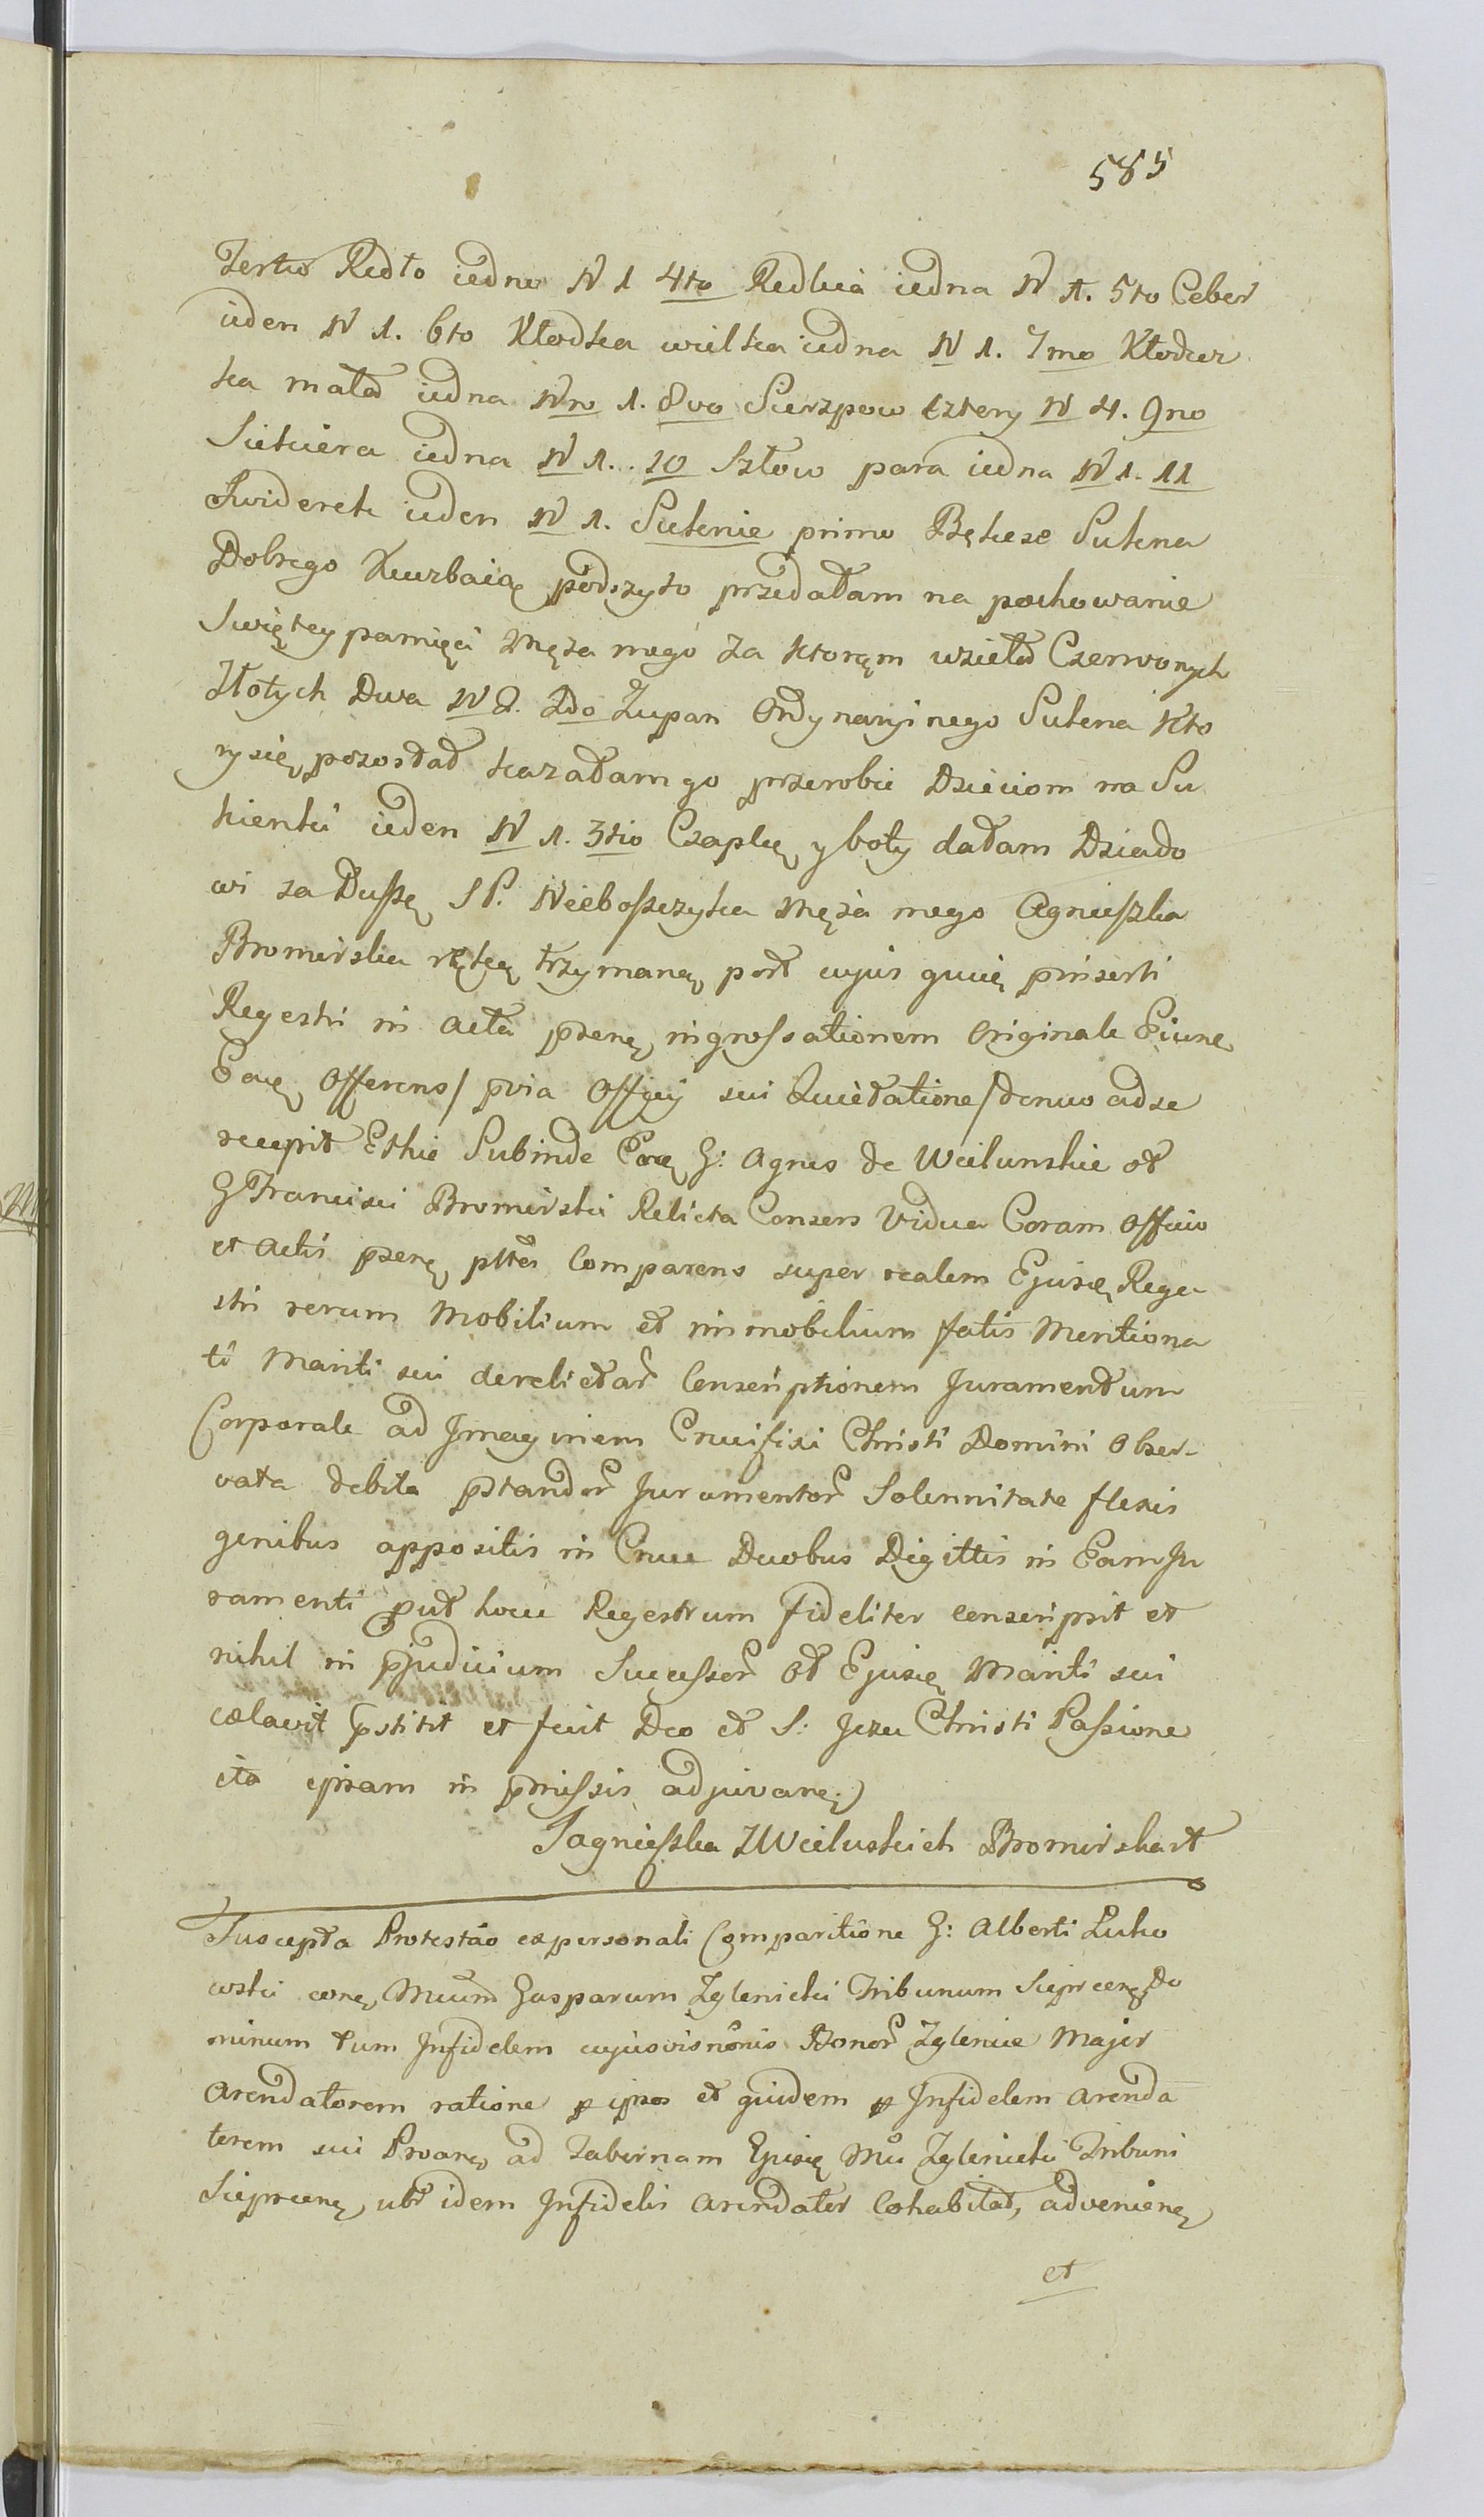 585
Tertio Redło iedno N 1 4to Redlica iedna N 1. 5to Ceber
ieden N 1. 6to Kłodka wielka iedna N 1. 7mo Kłodecz
ka mała iedna Nro 1. 8vo Sierzpow cztery N 4. 9no
Siekiera iedna N 1. . 10 Szłow para iedna N 1. 11
Swiderek ieden N 1. Suknie primo Bękesz Sukna
Dobrego Kuczbaią podszyto przedałam na pochowanie
Swiętey pamięci Męża mego za ktorąm wzieła Czerwonych
Złotych Dwa N 2. 2do Żupan Ordynaryinego Sukna Kto
ry się pozostał kazałam go przerobic Dzieciom na Su
kienki ieden N 1. 3tio Czapkę y boty dałam Dziado
wi za Dußę SP. Nieboszczyka Męża mego Agnieszka
Bromirska ręką trzymaną post cujus quię pinserti
Regestri in acta pserię ingrossationem Originale Eiune
Eaę Offerens / pvia Officij sui Quietatione / denuo ad se
recepit Ethic Subinde Eaę G: Agnes de Wielunskie ol
G Francisci Bromirski Relicta Consors Vidua Coram Officio
et Actis pserię pltr Comparens super realem Ejusę Rege
stri rerum Mobilium et immobilium fatis Mentiona
ti Mariti sui derelictar Conscriptionem Juramentum
Corporale ad Imaginem Crucifixi Christi Domini Obser-
vata debita pstandor Juramentor Solennitate flexis
genibus appositis in Cruce Duobus Digittis in Eam Ju
ramenti put hocce Regestrum fideliter conscripsit et
nihil in pjudicium Sucessor Ol Ejusę Mariti sui
celavit pstitit et fecit Deo et S: Jezu Christi Passione
ita ipsam in pmissis adjuvanę
Jagnieszka Z Wieluskich Bromirska rt
Suscepta Protestao ex personali Comparitione G: Alberti Luko
wski conę Mcum Gasparum Zglenicki Tribunum Sieprcenę Do
minum tum Infidelem cujusvis nonis Bonor Zglenice Major
Arendatorem ratione p ipsos et quidem p Infidelem Arenda
torem sui Provanę ad Tabernam Ejusę Mci Zglenicki Tribuni
Sieprcenę ubi idem Infidelis Arendator Cohabitat, advenienę
et